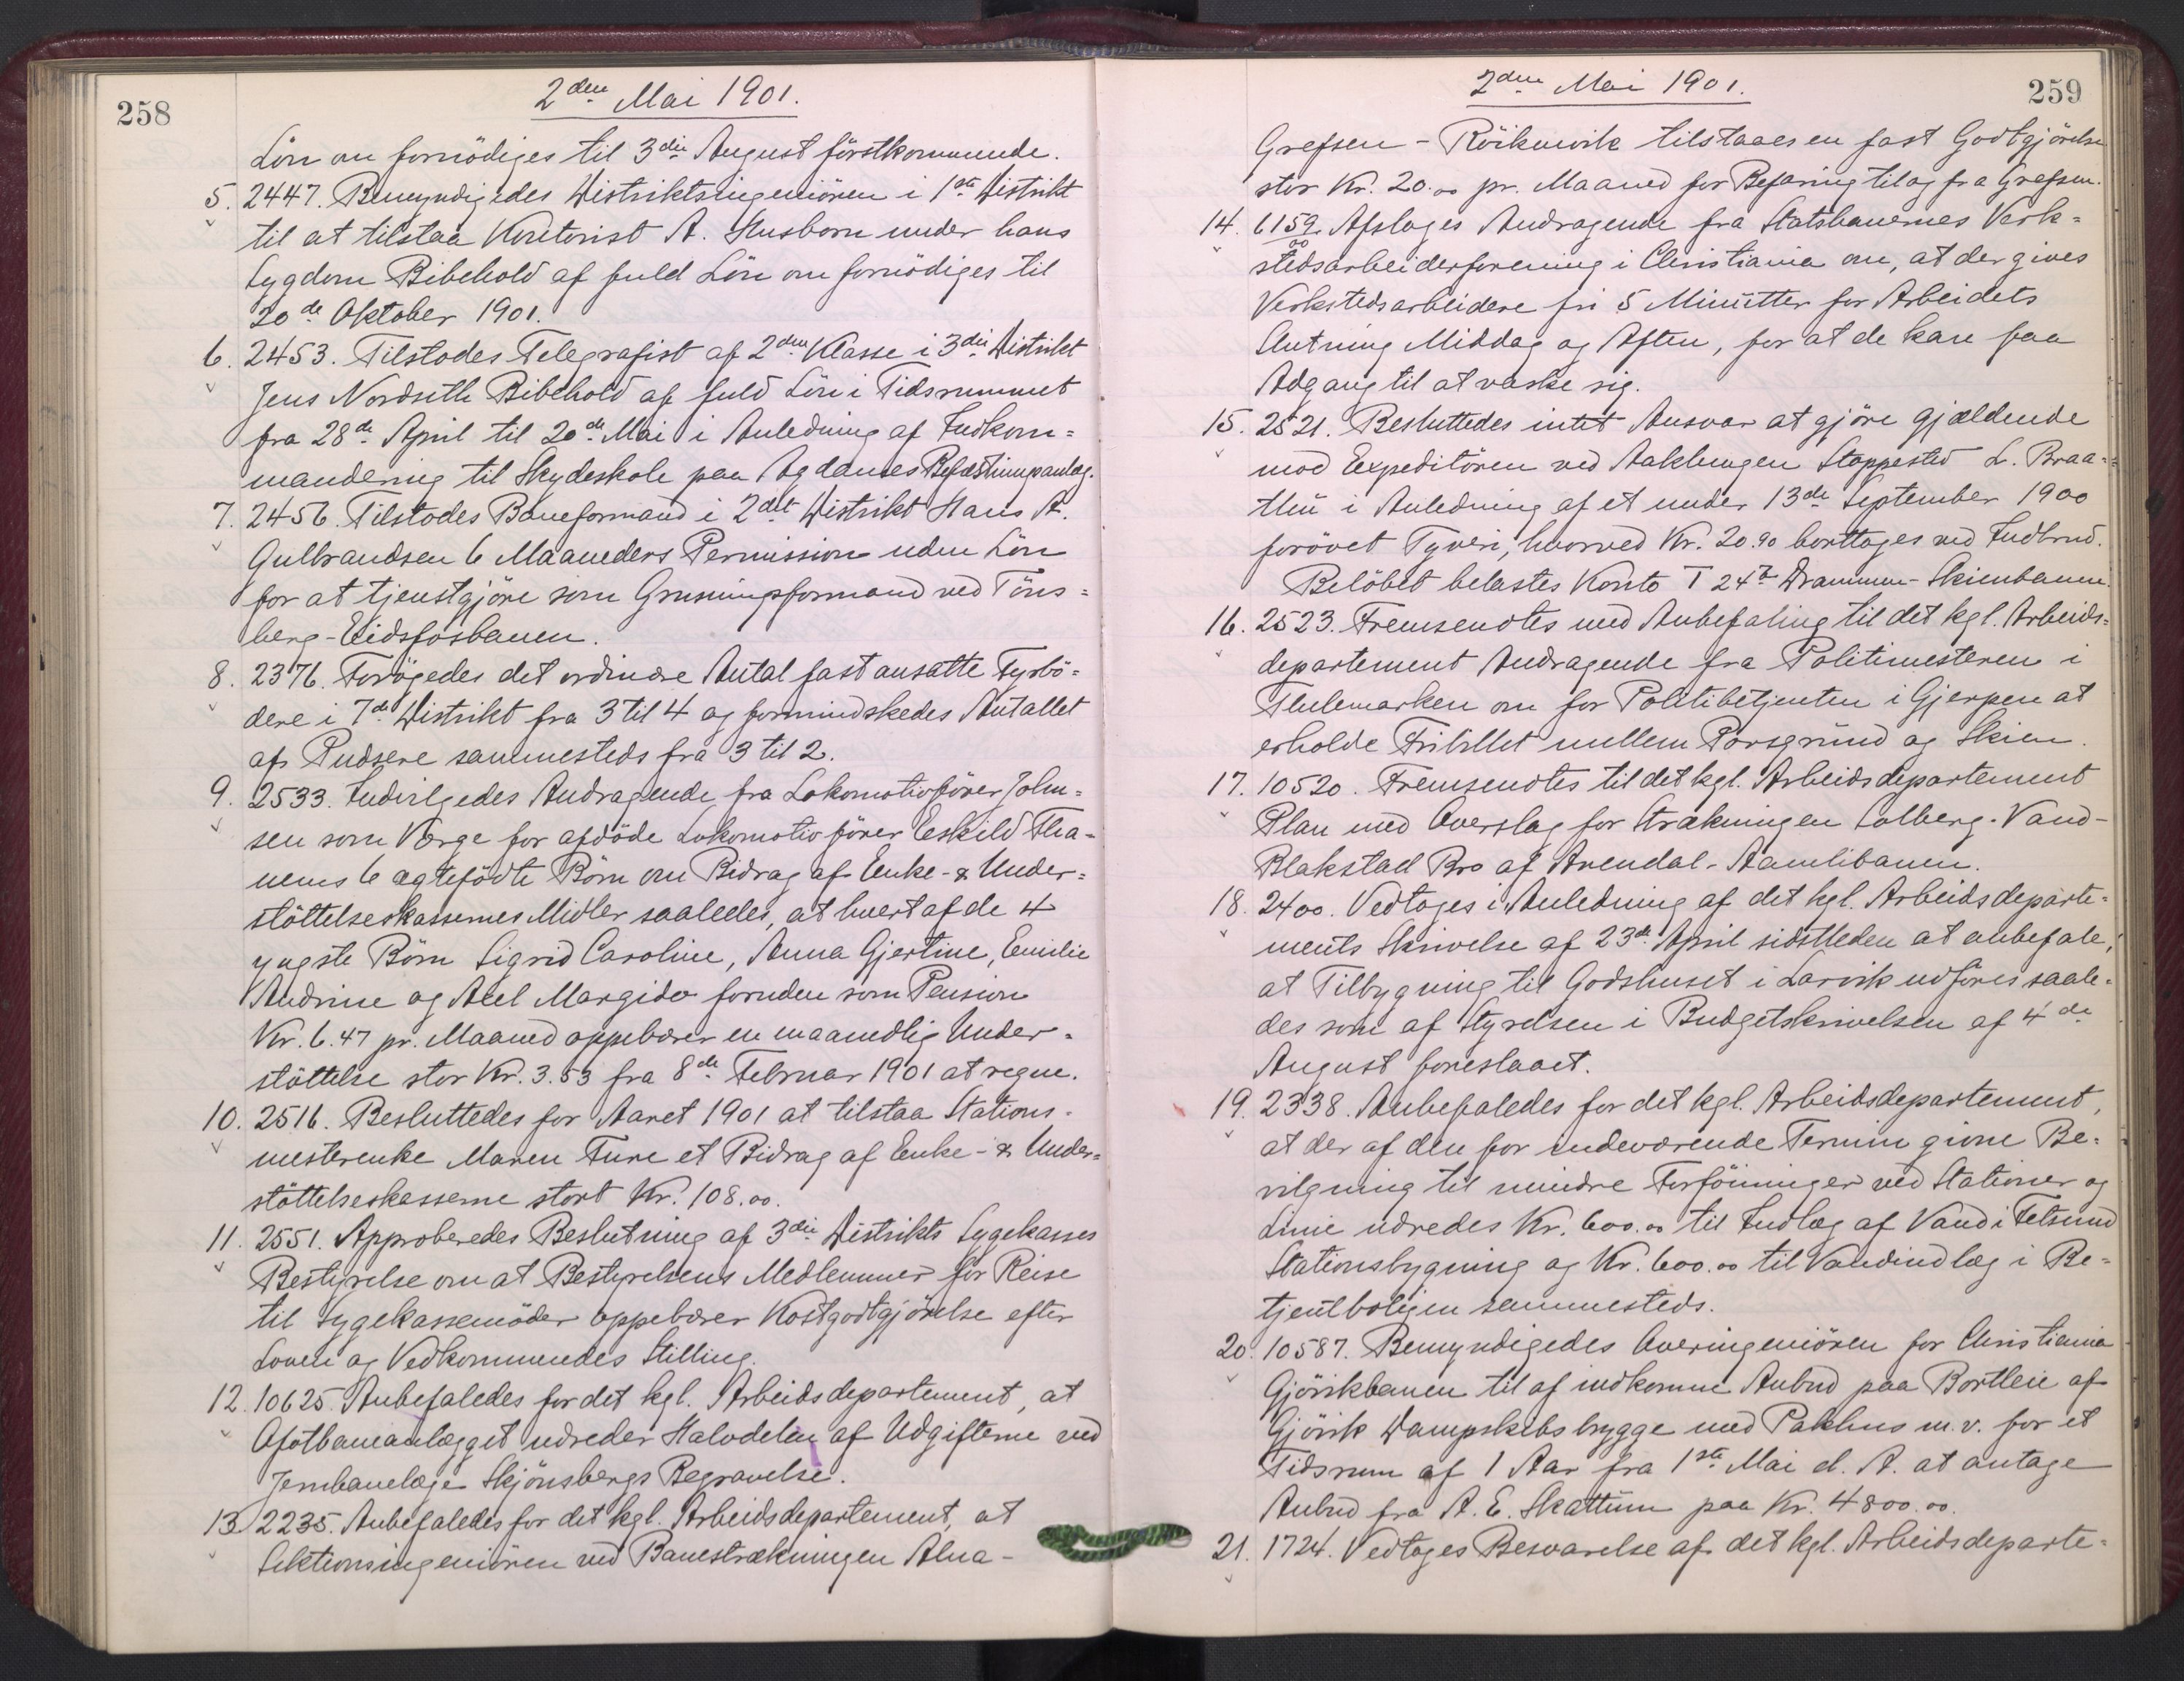 258
2den Mai 1901.
Lön om fornödiges til 3die August förstkommende.
5. 2447. Bemyndigedes Distriktsingeniören i 1ste Distrikt
til at tilstaa Kontorist A. Husborn under hans
Sygdom Bibehold af fuld Lön om fornödiges til
20de Oktober 1901.
6. 2453. Tilstodes Telegrafist af 2den Klasse i 3die Distrikt
Jens Nordseth Bibehold af fuld Lön i Tidsrummet
fra 28de April til 20de Mai i Anledning af Indkom=
mandering til Skydeskole paa Agdanes Befæstningsanlæg.
7. 2456. Tilstodes Baneformand i 2det Distrikt Hans A.
Gulbrandsen 6 Maaneders Permission uden Lön
for at tjenstgjöre som Grusningsformand ved Töns=
berg-Eidsfosbanen.
8. 2376. Forögedes det ordinære Antal fast ansatte Fyrbö=
dere i 7de Distrikt fra 3 til 4 og formindskedes Antallet
af Pudsere sammesteds fra 3 til 2.
9. 2533. Indvilgedes Andragende fra Lokomotivförer John=
sen som Værge for afdöde Lokomotivförer Eskild Tha=
nems 6 ægtefödte Börn om Bidrag af Enke- & Under=
stöttelseskassernes Midler saaledes, at hvert af de 4
yngste Börn Sigrid Caroline, Anna Gjertine, Emilie
Andrine og Axel Margido foruden som Pension
Kr. 6.47 pr. Maaned oppebærer en maanedlig Under=
stöttelse stor Kr. 3.53 fra 8de Februar 1901 at regne.
10. 2516. Besluttedes for Aaret 1901 at tilstaa Stations=
mesterenke Maren Fure et Bidrag af Enke- & Under=
stöttelseskasserne stort Kr. 108.00.
11. 2551. Approberedes Beslutning af 3die Distrikts Sygekasses
Bestyrelse om at Bestyrelsens Medlemmer for Reise
til Sygekassemöder oppebærer Kostgodtgjörelse efter
Loven og Vedkommendes Stilling.
12. 10625. Anbefaledes for det kgl. Arbeidsdepartement, at
Ofotbaneanlægget udreder Halvdelen af Udgifterne ved
Jernbanelæge Skjönsbergs Begravelse.
13. 2235. Anbefaledes for det kgl. Arbeidsdepartement, at
Sektionsingeniören ved Banestrækningen Alna-
2den Mai 1901.
259
Grefsen - Röikenvik tilstaaes en fast Godtgjörelse
stor Kr. 20.00 pr. Maaned for Befaring til og fra Grefsen.
14. 6159/00. Afsloges Andragende fra Statsbanernes Verk=
stedsarbeiderforening i Christiania om, at der gives
Verkstedsarbeidere fri 5 Minutter for Arbeidets
Slutning Middag og Aften, for at de kan faa
Adgang til at vaske sig.
15. 2521. Besluttedes intet Ansvar at gjöre gjældende
mod Expeditören ved Aaklungen Stoppested L. Braa=
then i Anledning af et under 13de September 1900
forövet Tyveri, hvorved Kr. 20.90 borttoges ved Indbrud.
Belöbet belastes Konto T 24b Drammen-Skienbanen.
16. 2523. Fremsendtes med Anbefaling til det kgl. Arbeids=
departement Andragende fra Politimesteren i
Thelemarken om for Politibetjenten i Gjerpen at
erholde Fribillet mellem Porsgrund og Skien.
17. 10520. Fremsendtes til det kgl. Arbeidsdepartement
Plan med Overslag for Strækningen Solberg. Vand-
Blakstad Bro af Arendal-Aamlibanen.
18. 2400. Vedtoges i Anledning af det kgl. Arbeidsdeparte=
ments Skrivelse af 23de April sidstleden at anbefale,
at Tilbygning til Godshuset i Larvik udföres saale=
des som af Styrelsen i Budgetskrivelsen af 4de
August foreslaaet.
19. 2338. Anbefaledes for det kgl. Arbeidsdepartement,
at der af den for indeværende Termin givne Be=
vilgning til mindre Forföininger ved Stationer og
Linie udredes Kr. 600.00 til Indlæg af Vand i Fetsund
Stationsbygning og Kr. 600.00 til Vandindlæg i Be=
tjentboligen sammesteds.
20. 10587. Bemyndigedes Overingeniören for Christiania
Gjövikbanen til af indkomne Anbud paa Bortleie af
Gjövik Dampskibsbrygge med Pakhus m.v. for et
Tidsrum af 1 Aar fra 1ste Mai d. A. at antage
Anbud fra A. E. Skattum paa Kr. 4800.00.
21. 1724. Vedtoges Besvarelse af det kgl. Arbeidsdeparte=